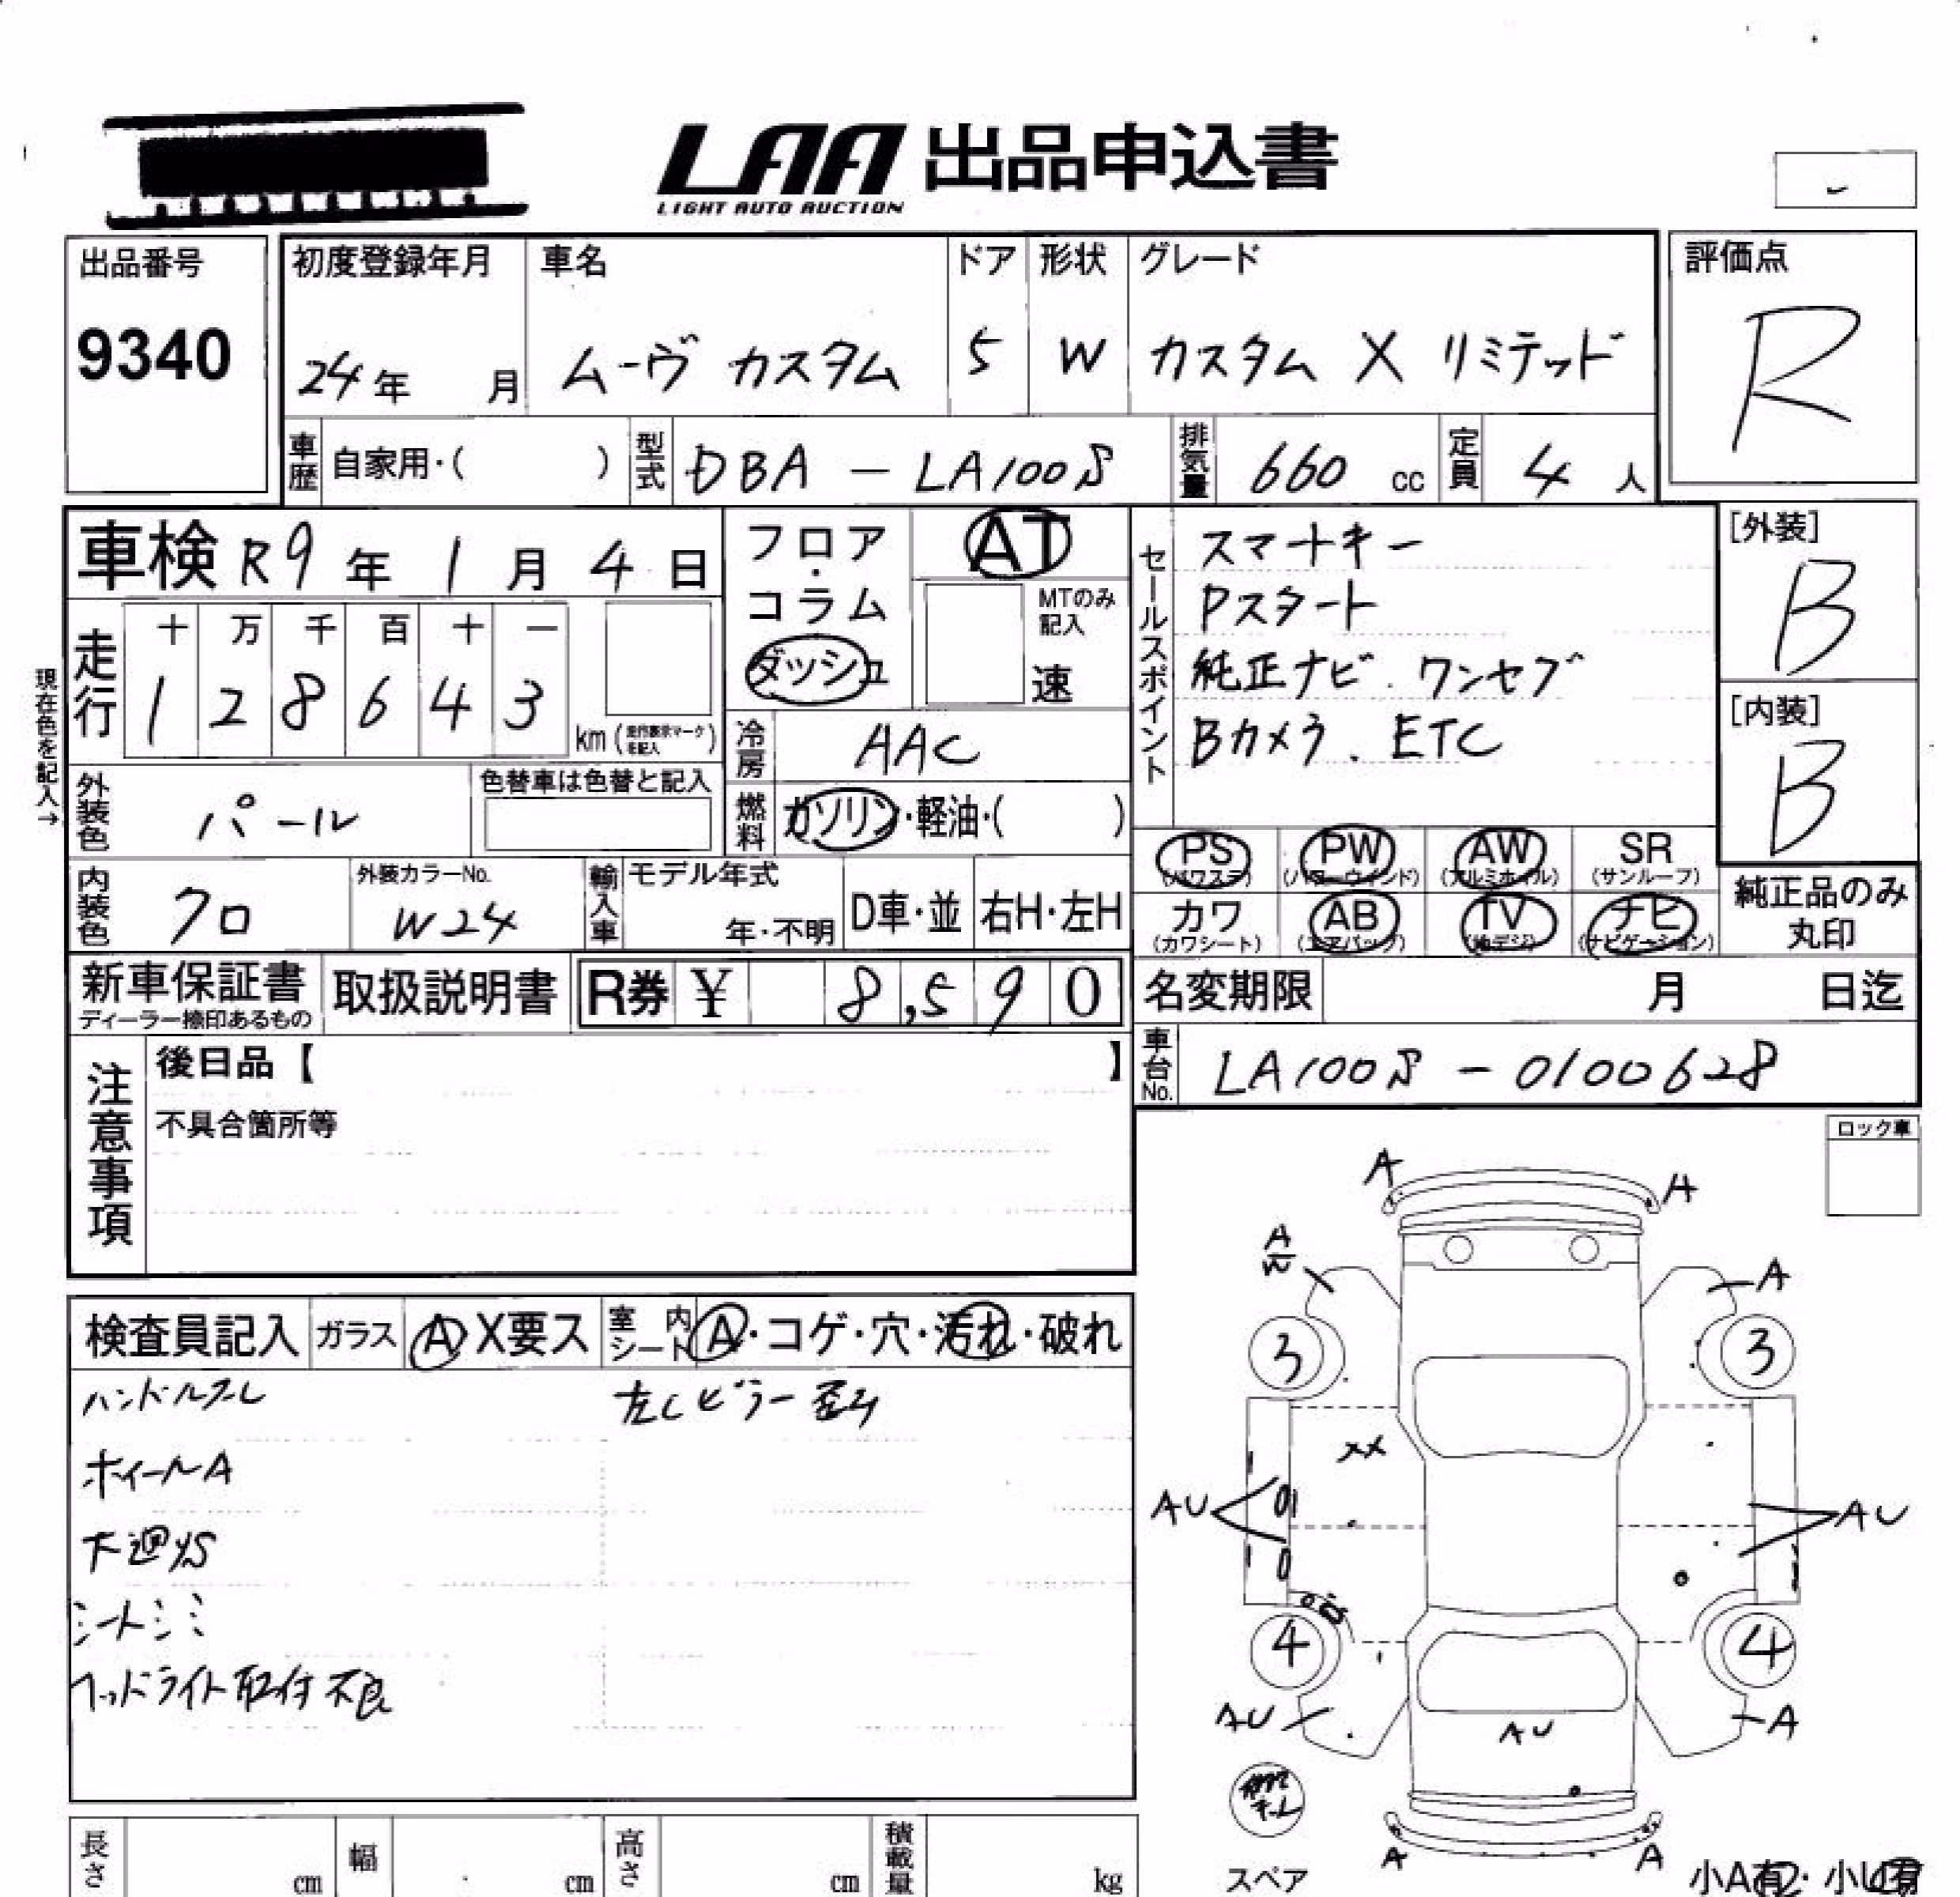 LAA 出品申込書
LIGHT AUTO AUCTION
出品番号
9340
初度登録年月
24年 月
車名
ムーヴ カスタム
ドア
5
形状
W
グレード
カスタム X リミテッド
評価点
R
車歴 自家用・( )
型式 DBA - LA100S
排気量 660 cc
定員 4 人
車検 R9年 1月 4日
フロア・コラム
ダッシュ
AT
MTのみ記入
速
セールスポイント
スマートキー
Pスタート
純正ナビ. ワンセグ
Bカメラ. ETC
[外装]
B
[内装]
B
現在色を記入→
走行
十 万 千 百 十 一
1 2 8 6 4 3
km (走行表示マークを記入)
冷房 AAC
燃料 ガソリン・軽油・( )
外装色 パール
色替車は色替と記入
PS (パワステ)
PW (パワーウィンド)
AW (アルミホイル)
SR (サンルーフ)
カワ (カワシート)
AB (エアバック)
TV (地デジ)
ナビ (ナビゲーション)
純正品のみ丸印
内装色 クロ
外装カラーNo.
W24
輸入車 モデル年式
年・不明
D車・並
右H・左H
新車保証書
ディーラー捺印あるもの
取扱説明書
R券 ¥ 8,590
名変期限 月 日迄
車台No. LA100S - 0100628
注意事項
後日品【 】
不具合箇所等
ロック車
検査員記入
ガラス A X要ス
室内シート A・コゲ・穴・汚れ・破れ
ハンドルスレ
左Cピラー歪み
ホイールA
下廻りS
シートシミ
ヘッドライト取付不良
A A
A W
A
3 3
XX
AU AU
4 4
AU A
AU
A A
スペア
小A有・小U有
長さ cm
幅 cm
高さ cm
積載量 kg